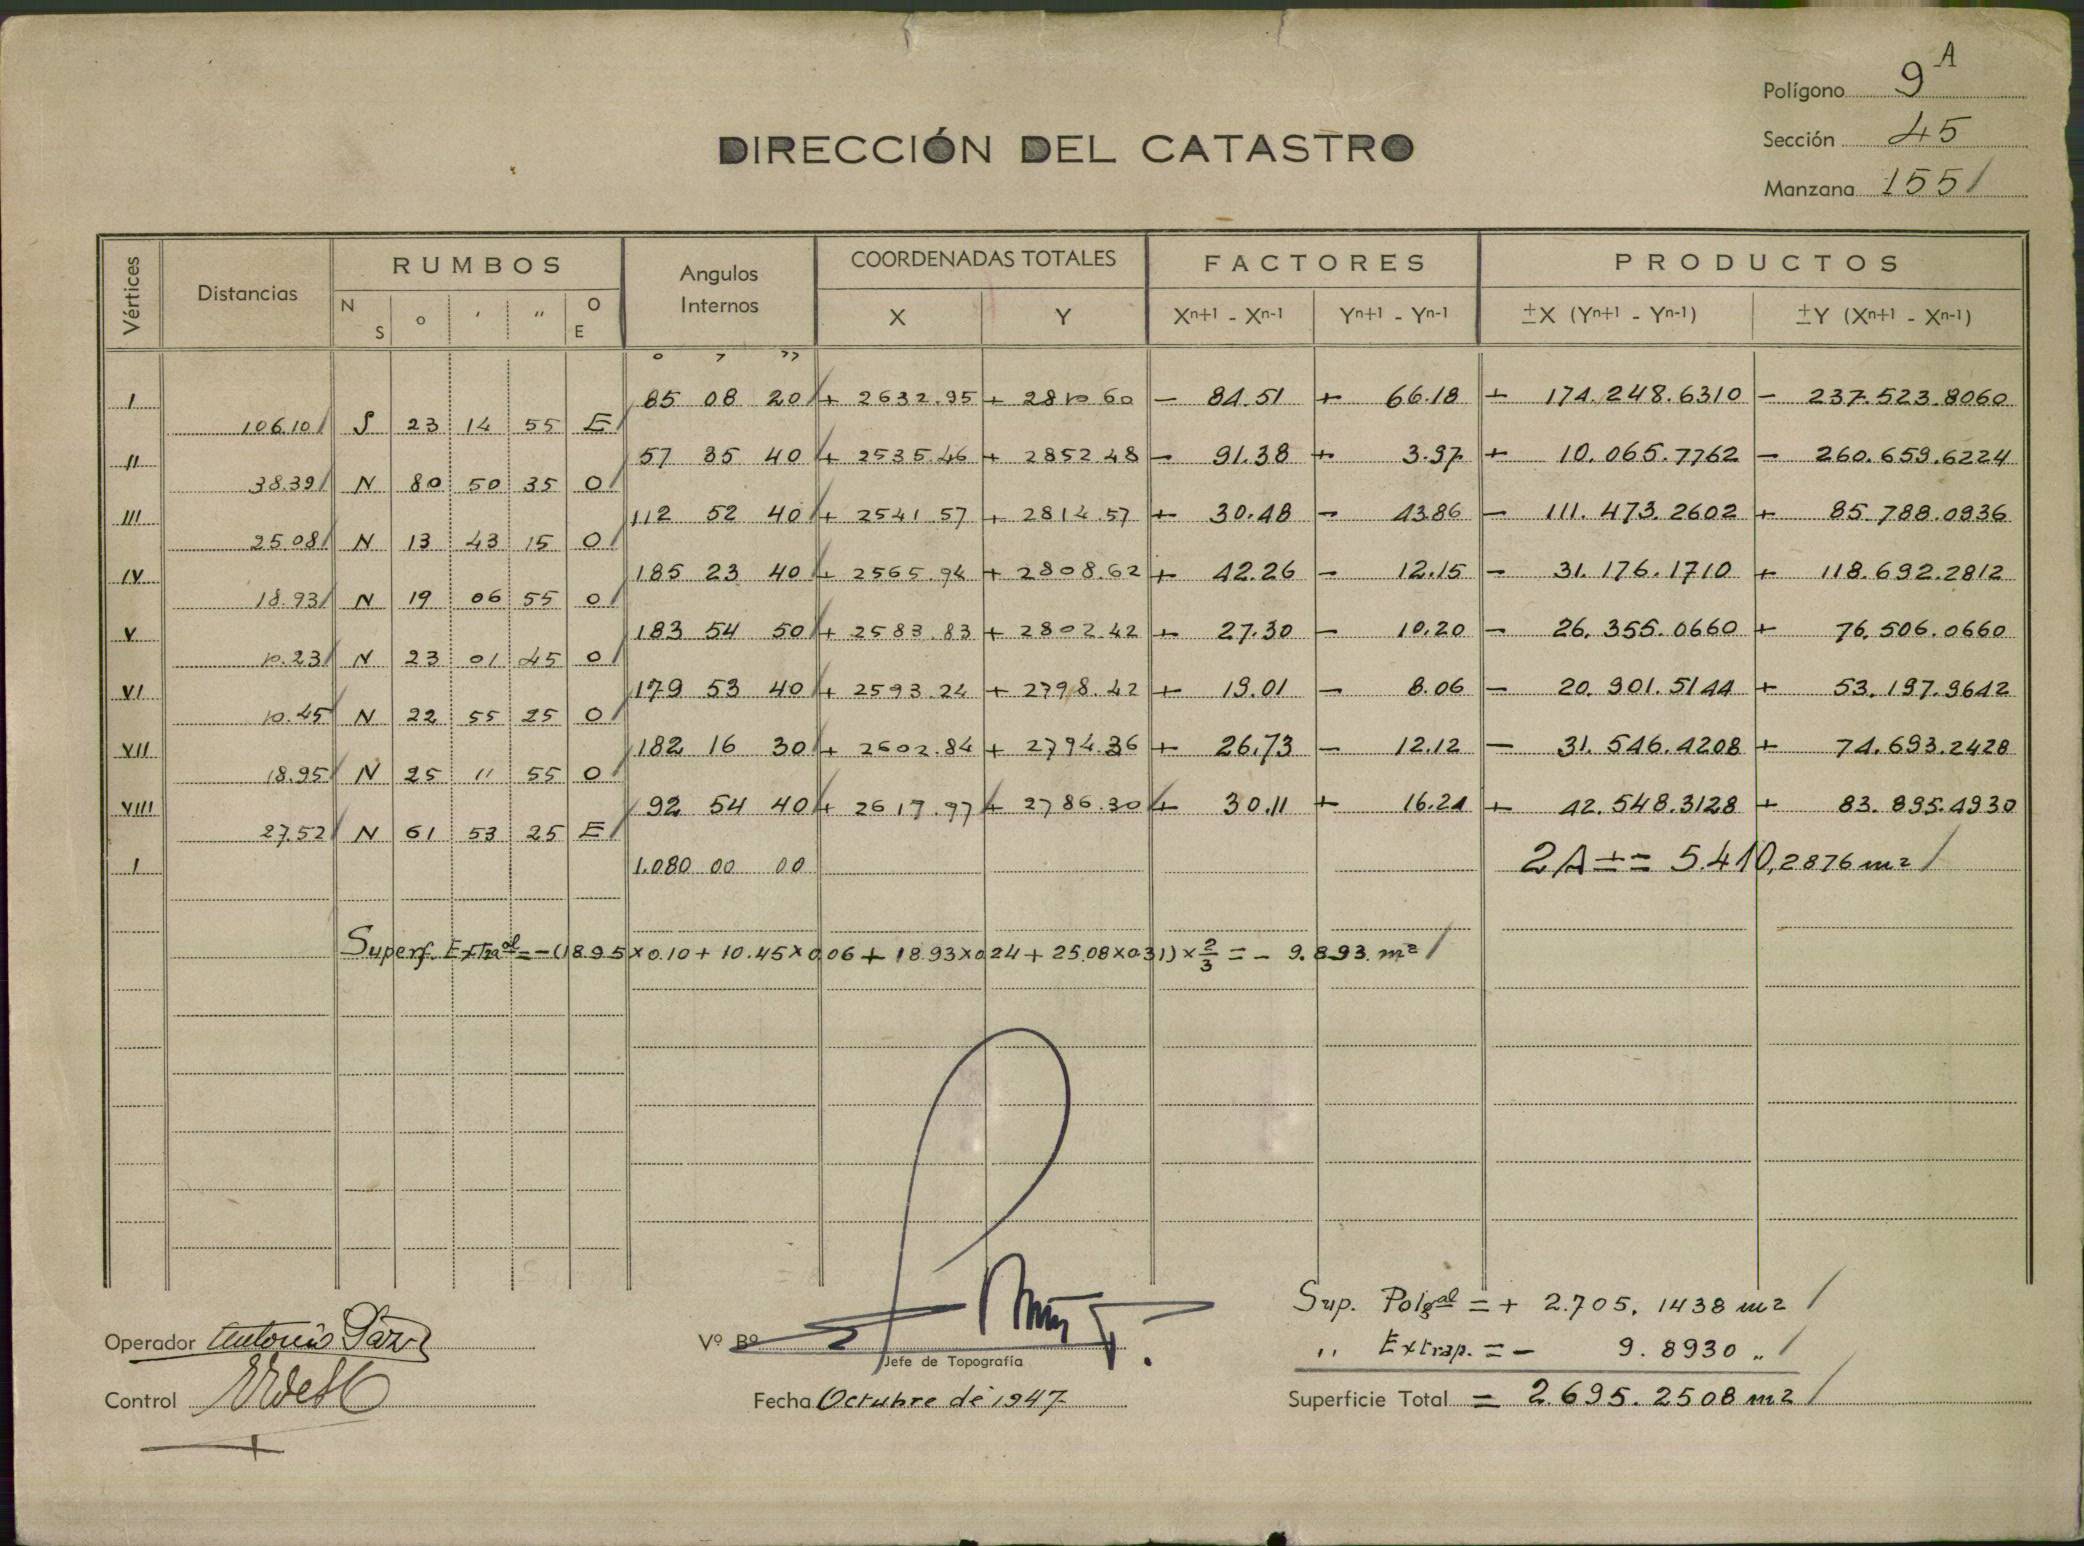 Polígono 9 A
Sección 45
Manzana 1551
DIRECCIÓN DEL CATASTRO
Vértices Distancias RUMBOS Angulos Internos COORDENADAS TOTALES FACTORES PRODUCTOS
N S o ' " O E X Y Xn+1 - Xn-1 Yn+1 - Yn-1 ±X (Yn+1 - Yn-1) ±Y (Xn+1 - Xn-1)
o , ,,
I 85 08 20 + 2632.95 + 2810.60 - 84.51 + 66.18 + 174.248.6310 - 237.523.8060
106.10 S 23 14 55 E
II 57 35 40 + 2535.46 + 2852.48 - 91.38 + 3.97 + 10.065.7762 - 260.659.6224
38.39 N 80 50 35 O
III 112 52 40 + 2541.57 + 2814.57 + 30.48 - 43.86 - 111.473.2602 + 85.788.0936
25.08 N 13 43 15 O
IV 185 23 40 + 2565.94 + 2808.62 + 42.26 - 12.15 - 31.176.1710 + 118.692.2812
18.93 N 19 06 55 O
V 183 54 50 + 2583.83 + 2802.42 + 27.30 - 10.20 - 26.355.0660 + 76.506.0660
10.23 N 23 01 45 O
VI 179 53 40 + 2593.24 + 2798.42 + 19.01 - 8.06 - 20.901.5144 + 53.197.9642
10.45 N 22 55 25 O
VII 182 16 30 + 2602.84 + 2794.36 + 26.73 - 12.12 - 31.546.4208 + 74.693.2428
18.95 N 25 11 55 O
VIII 92 54 40 + 2619.97 + 2786.30 + 30.11 + 16.24 + 42.548.3128 + 83.895.4930
27.52 N 61 53 25 E
I 1.080 00 00 2A += 5.410,2876 m2
Superf. Extral = -(18.95×0.10 + 10.45×0.06 + 18.93×0.24 + 25.08×0.31)×2/3 = - 9.893 m2
Sup. Polgal = + 2.705.1438 m2
,, Extrap. = - 9.8930 "
Operador Antonio Páez
Vº Bº
Jefe de Topografía
Control
Fecha Octubre de 1947
Superficie Total = 2.695.2508 m2